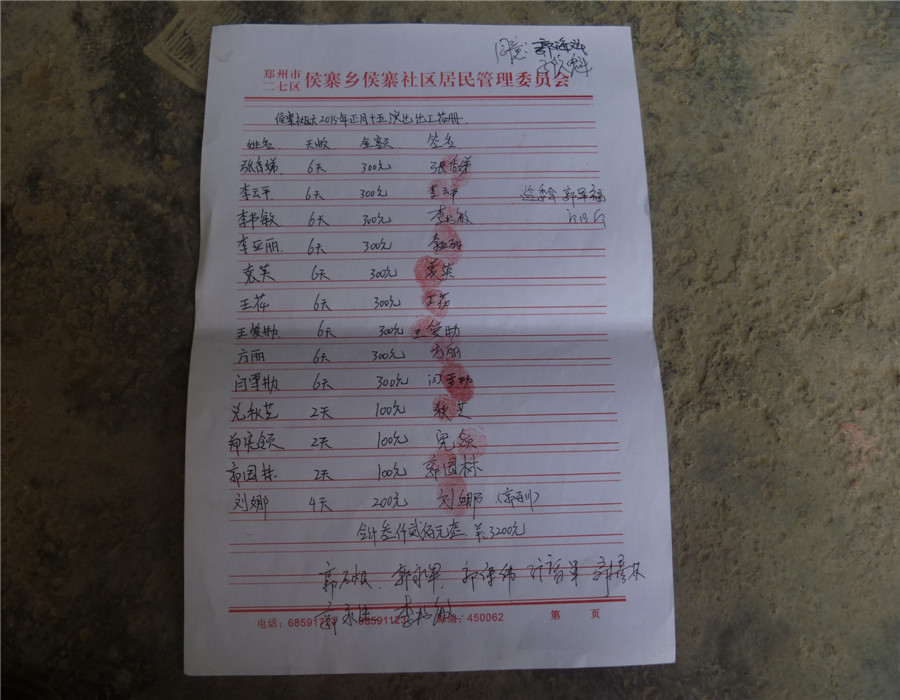 同意
郑州市
二七区 侯寨乡侯寨社区居民管理委员会
侯寨社区2015年正月十五演出出工花册
姓名 天数 金额 签名
张香娣 6天 300元 张香娣
李云平 6天 300元 李云平 监委会 郭军福
李书敏 6天 300元 李书敏
李亚丽 6天 300元
袁英 6天 300元 袁英
王花 6天 300元 王花
王爱勤 6天 300元 王爱勤
方丽 6天 300元 方丽
闫雪勤 6天 300元 闫雪勤
兑秋芝 2天 100元 秋芝
郑宪领 2天 100元 宪领
郭园林 2天 100元 郭园林
刘娜 4天 200元 刘娜
合计叁仟贰佰元整 ¥:3200元
郭永军
电话:6859 6859112 邮编:450062 第 页